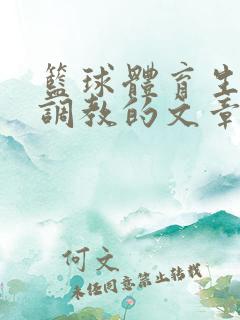 籃球體育生
調教的文章
何文
未經同意禁止轉載